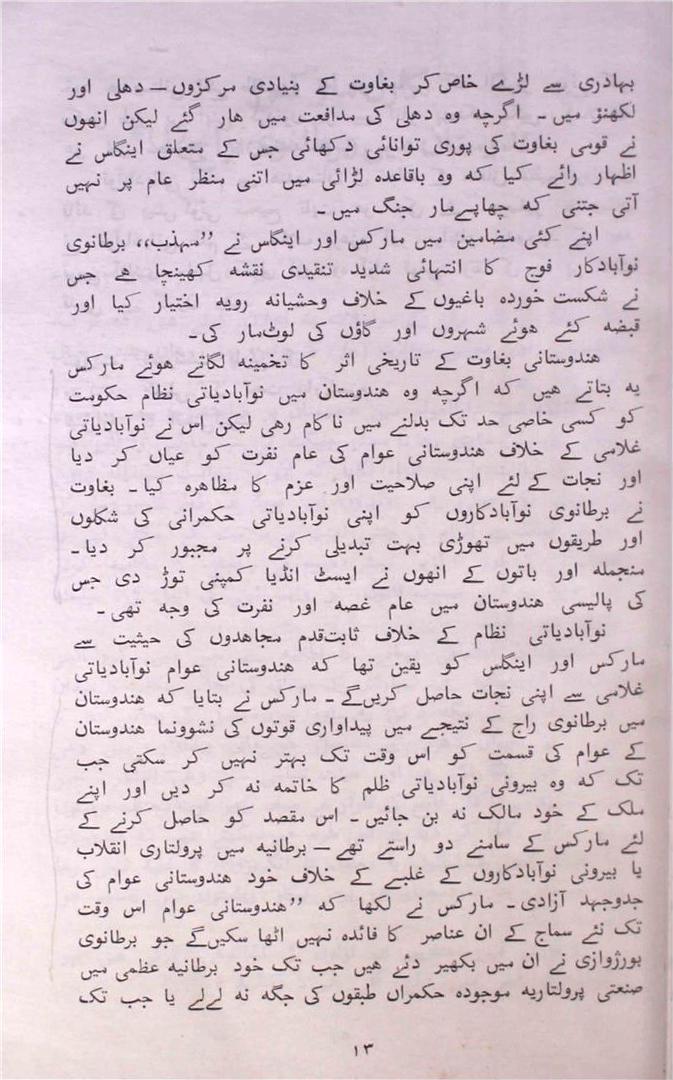 بہادری سے لڑے خاص‌کر بغاوت کے بنیادی مرکزوں — دھلی اور
لکھنؤ میں۔ اگرچہ وہ دھلی کی مدافعت میں ھار گئے لیکن انھوں
نے قومی بغاوت کی پوری توانائی دکھائی جس کے متعلق اینگاس نے
اظہار رائے کیا کہ وہ باقاعدہ لڑائی میں اتنی منظر عام پر نہیں
آتی جتنی کہ چھاپےمار جنگ میں۔
اپنے کئی مضامین میں مارکس اور اینگاس نے ’’مہذب،، برطانوی
نوآبادکار فوج کا انتہائی شدید تنقیدی نقشہ کھینچا ھے جس
نے شکست خوردہ باغیوں کے خلاف وحشیانہ رویہ اختیار کیا اور
قبضہ کئے ھوئے شہروں اور گاؤں کی لوٹ‌مار کی۔
ھندوستانی بغاوت کے تاریخی اثر کا تخمینہ لگاتے ھوئے مارکس
یہ بتاتے ھیں کہ اگرچہ وہ ھندوستان میں نوآبادیاتی نظام حکومت
کو کسی خاصی حد تک بدلنے میں ناکام رھی لیکن اس نے نوآبادیاتی
غلامی کے خلاف ھندوستانی عوام کی عام نفرت کو عیاں کر دیا
اور نجات کے لئے اپنی صلاحیت اور عزم کا مظاھرہ کیا۔ بغاوت
نے برطانوی نوآبادکاروں کو اپنی نوآبادیاتی حکمرانی کی شکلوں
اور طریقوں میں تھوڑی بہت تبدیلی کرنے پر مجبور کر دیا۔
منجملہ اور باتوں کے انھوں نے ایسٹ انڈیا کمپنی توڑ دی جس
کی پالیسی ھندوستان میں عام غصہ اور نفرت کی وجہ تھی۔
نوآبادیاتی نظام کے خلاف ثابت‌قدم مجاھدوں کی حیثیت سے
مارکس اور اینگلس کو یقین تھا کہ ھندوستانی عوام نوآبادیاتی
غلامی سے اپنی نجات حاصل کریں‌گے۔ مارکس نے بتایا کہ ھندوستان
میں برطانوی راج کے نتیجے میں پیداواری قوتوں کی نشوونما ھندوستان
کے عوام کی قسمت کو اس وقت تک بہتر نہیں کر سکتی جب
تک کہ وہ بیرونی نوآبادیاتی ظلم کا خاتمہ نہ کر دیں اور اپنے
ملک کے خود مالک نہ بن جائیں۔ اس مقصد کو حاصل کرنے کے
لئے مارکس کے سامنے دو راستے تھے — برطانیہ میں پرولتاری انقلاب
یا بیرونی نوآبادکاروں کے غلبے کے خلاف خود ھندوستانی عوام کی
جدوجہد آزادی۔ مارکس نے لکھا کہ ’’ھندوستانی عوام اس وقت
تک نئے سماج کے ان عناصر کا فائدہ نہیں اٹھا سکیں‌گے جو برطانوی
بورژوازی نے ان میں بکھیر دئے ھیں جب تک خود برطانیہ عظمی میں
صنعتی پرولتاریہ موجودہ حکمراں طبقوں کی جگہ نہ لے‌لے یا جب تک
۱۳